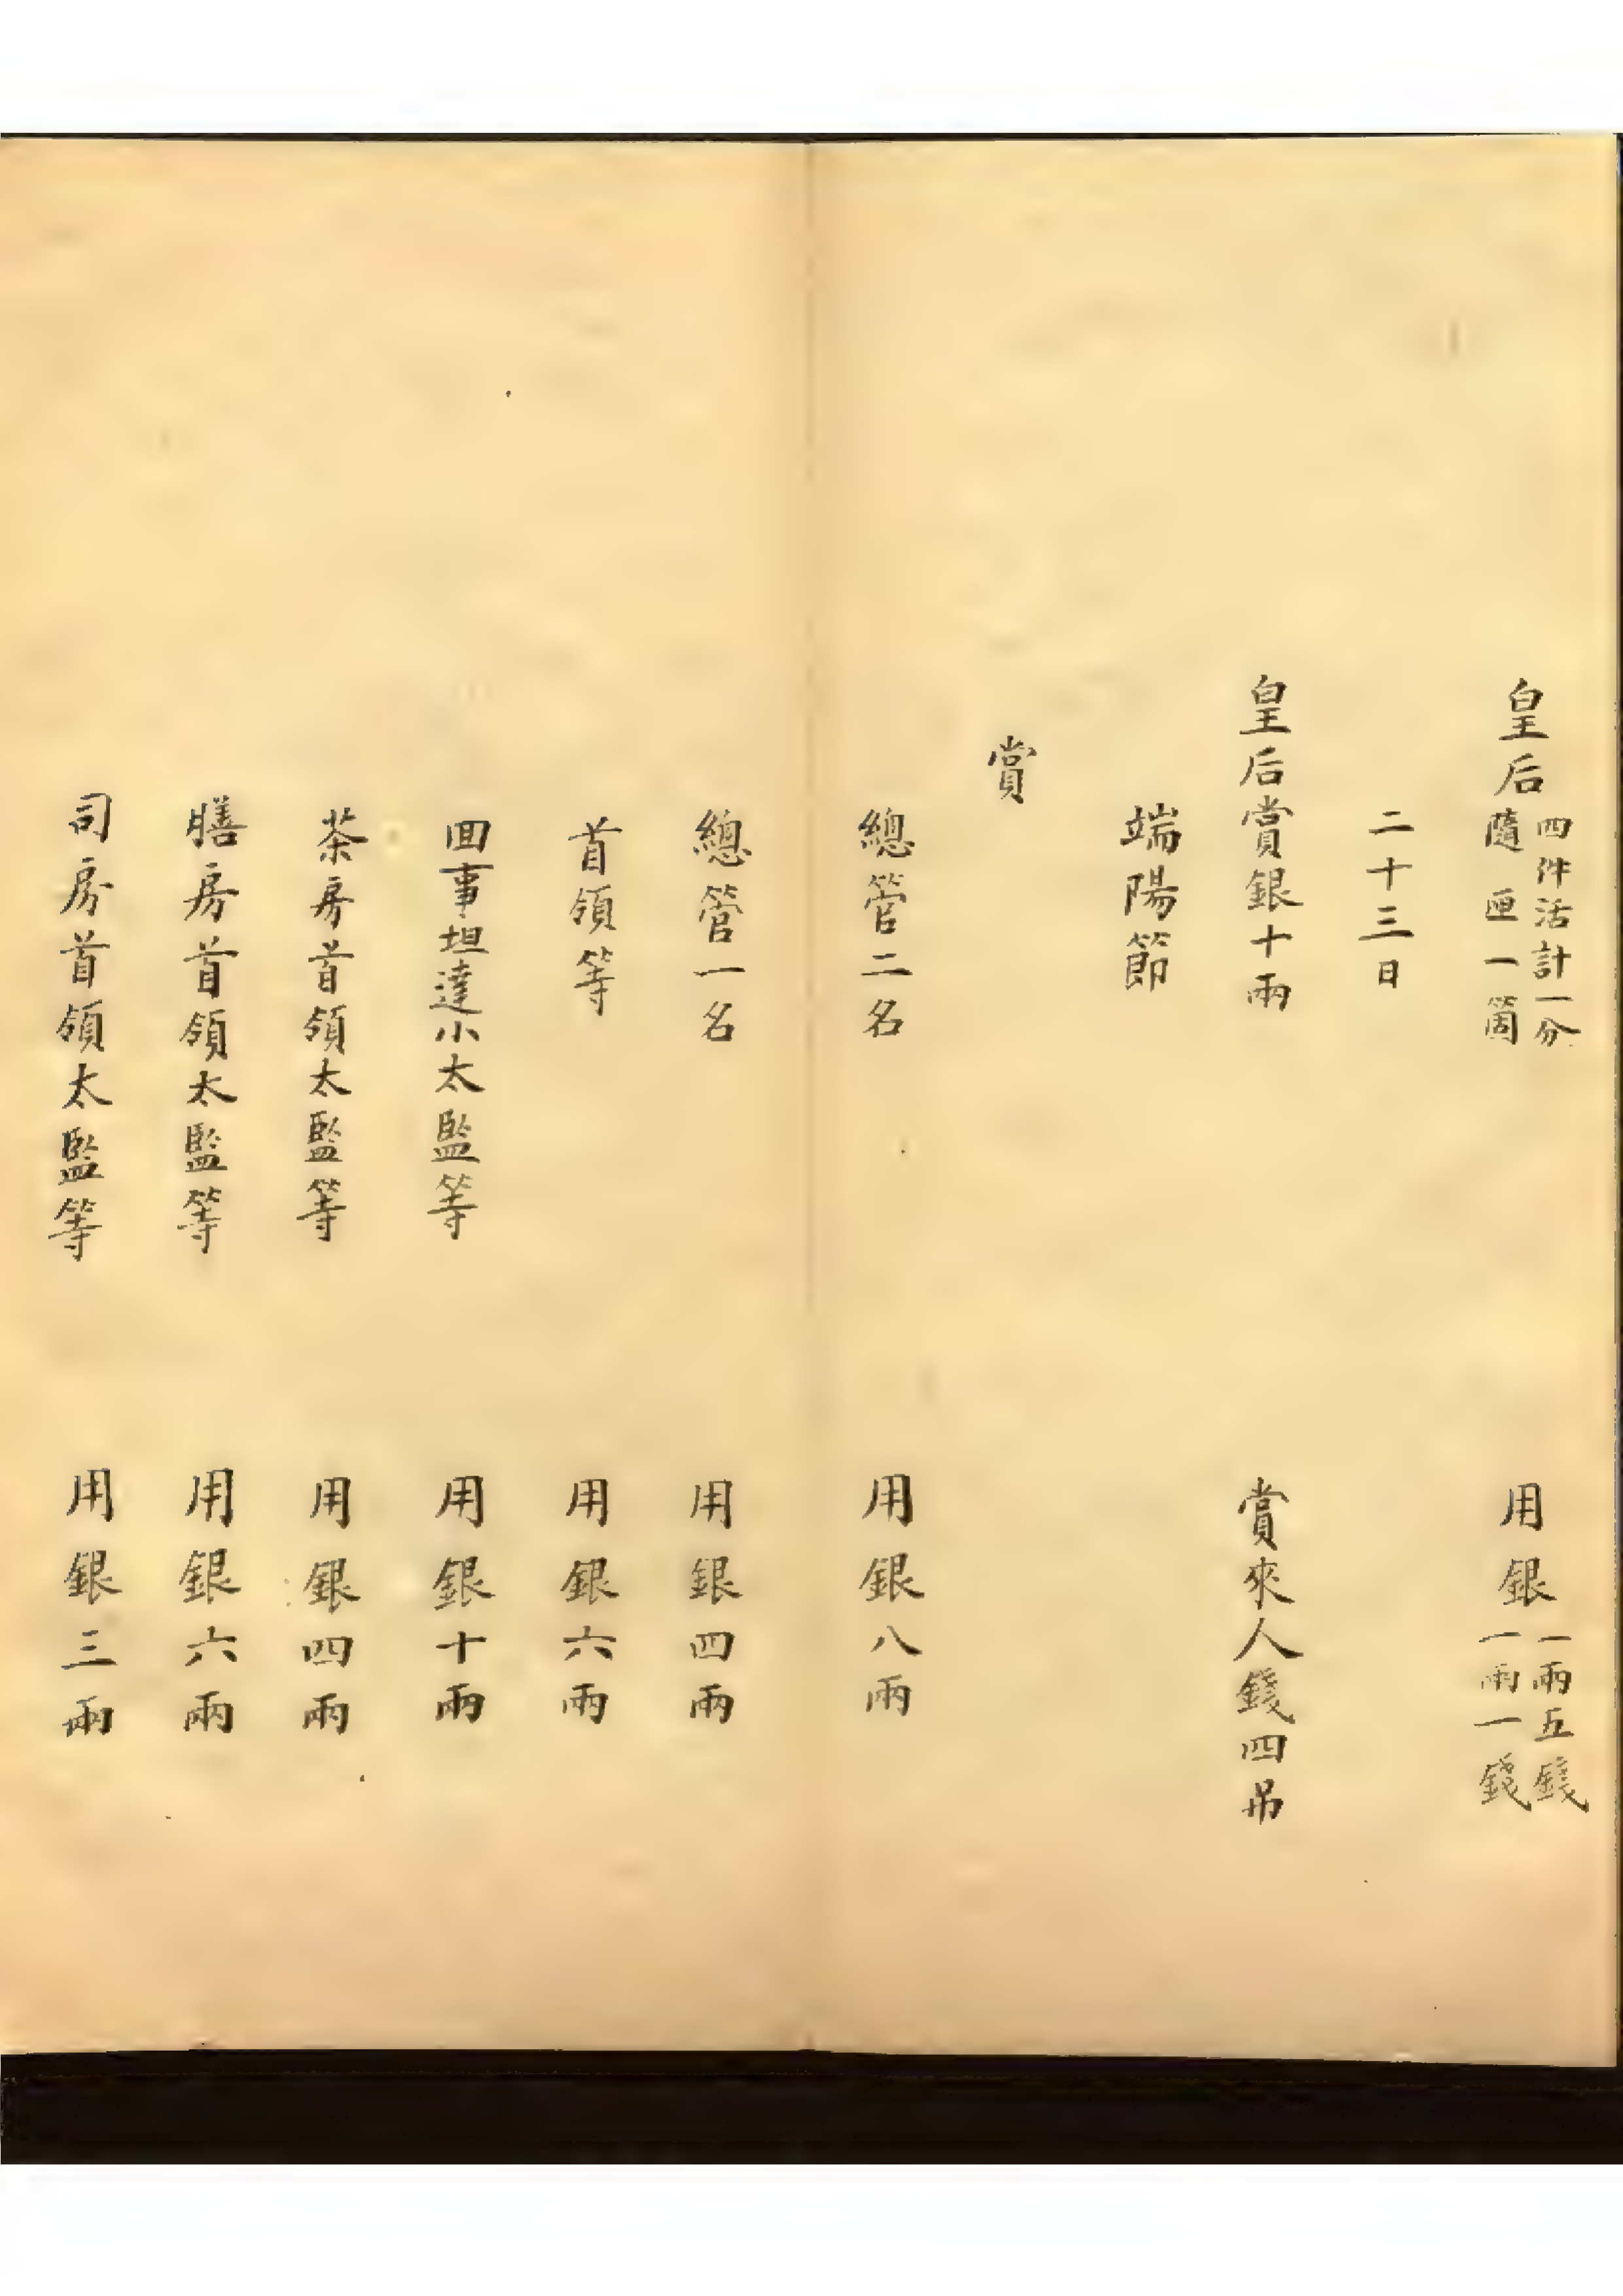 皇后四件活計一分隨匣一箇 用銀一兩五錢一兩一錢
二十三日
皇后賞銀十兩 賞來人錢四吊
端陽節
賞
總管二名 用銀八兩
總管一名 用銀四兩
首領等 用銀六兩
回事坦達小太監等 用銀十兩
茶房首領太監等 用銀四兩
膳房首領太監等 用銀六兩
司房首領太監等 用銀三兩